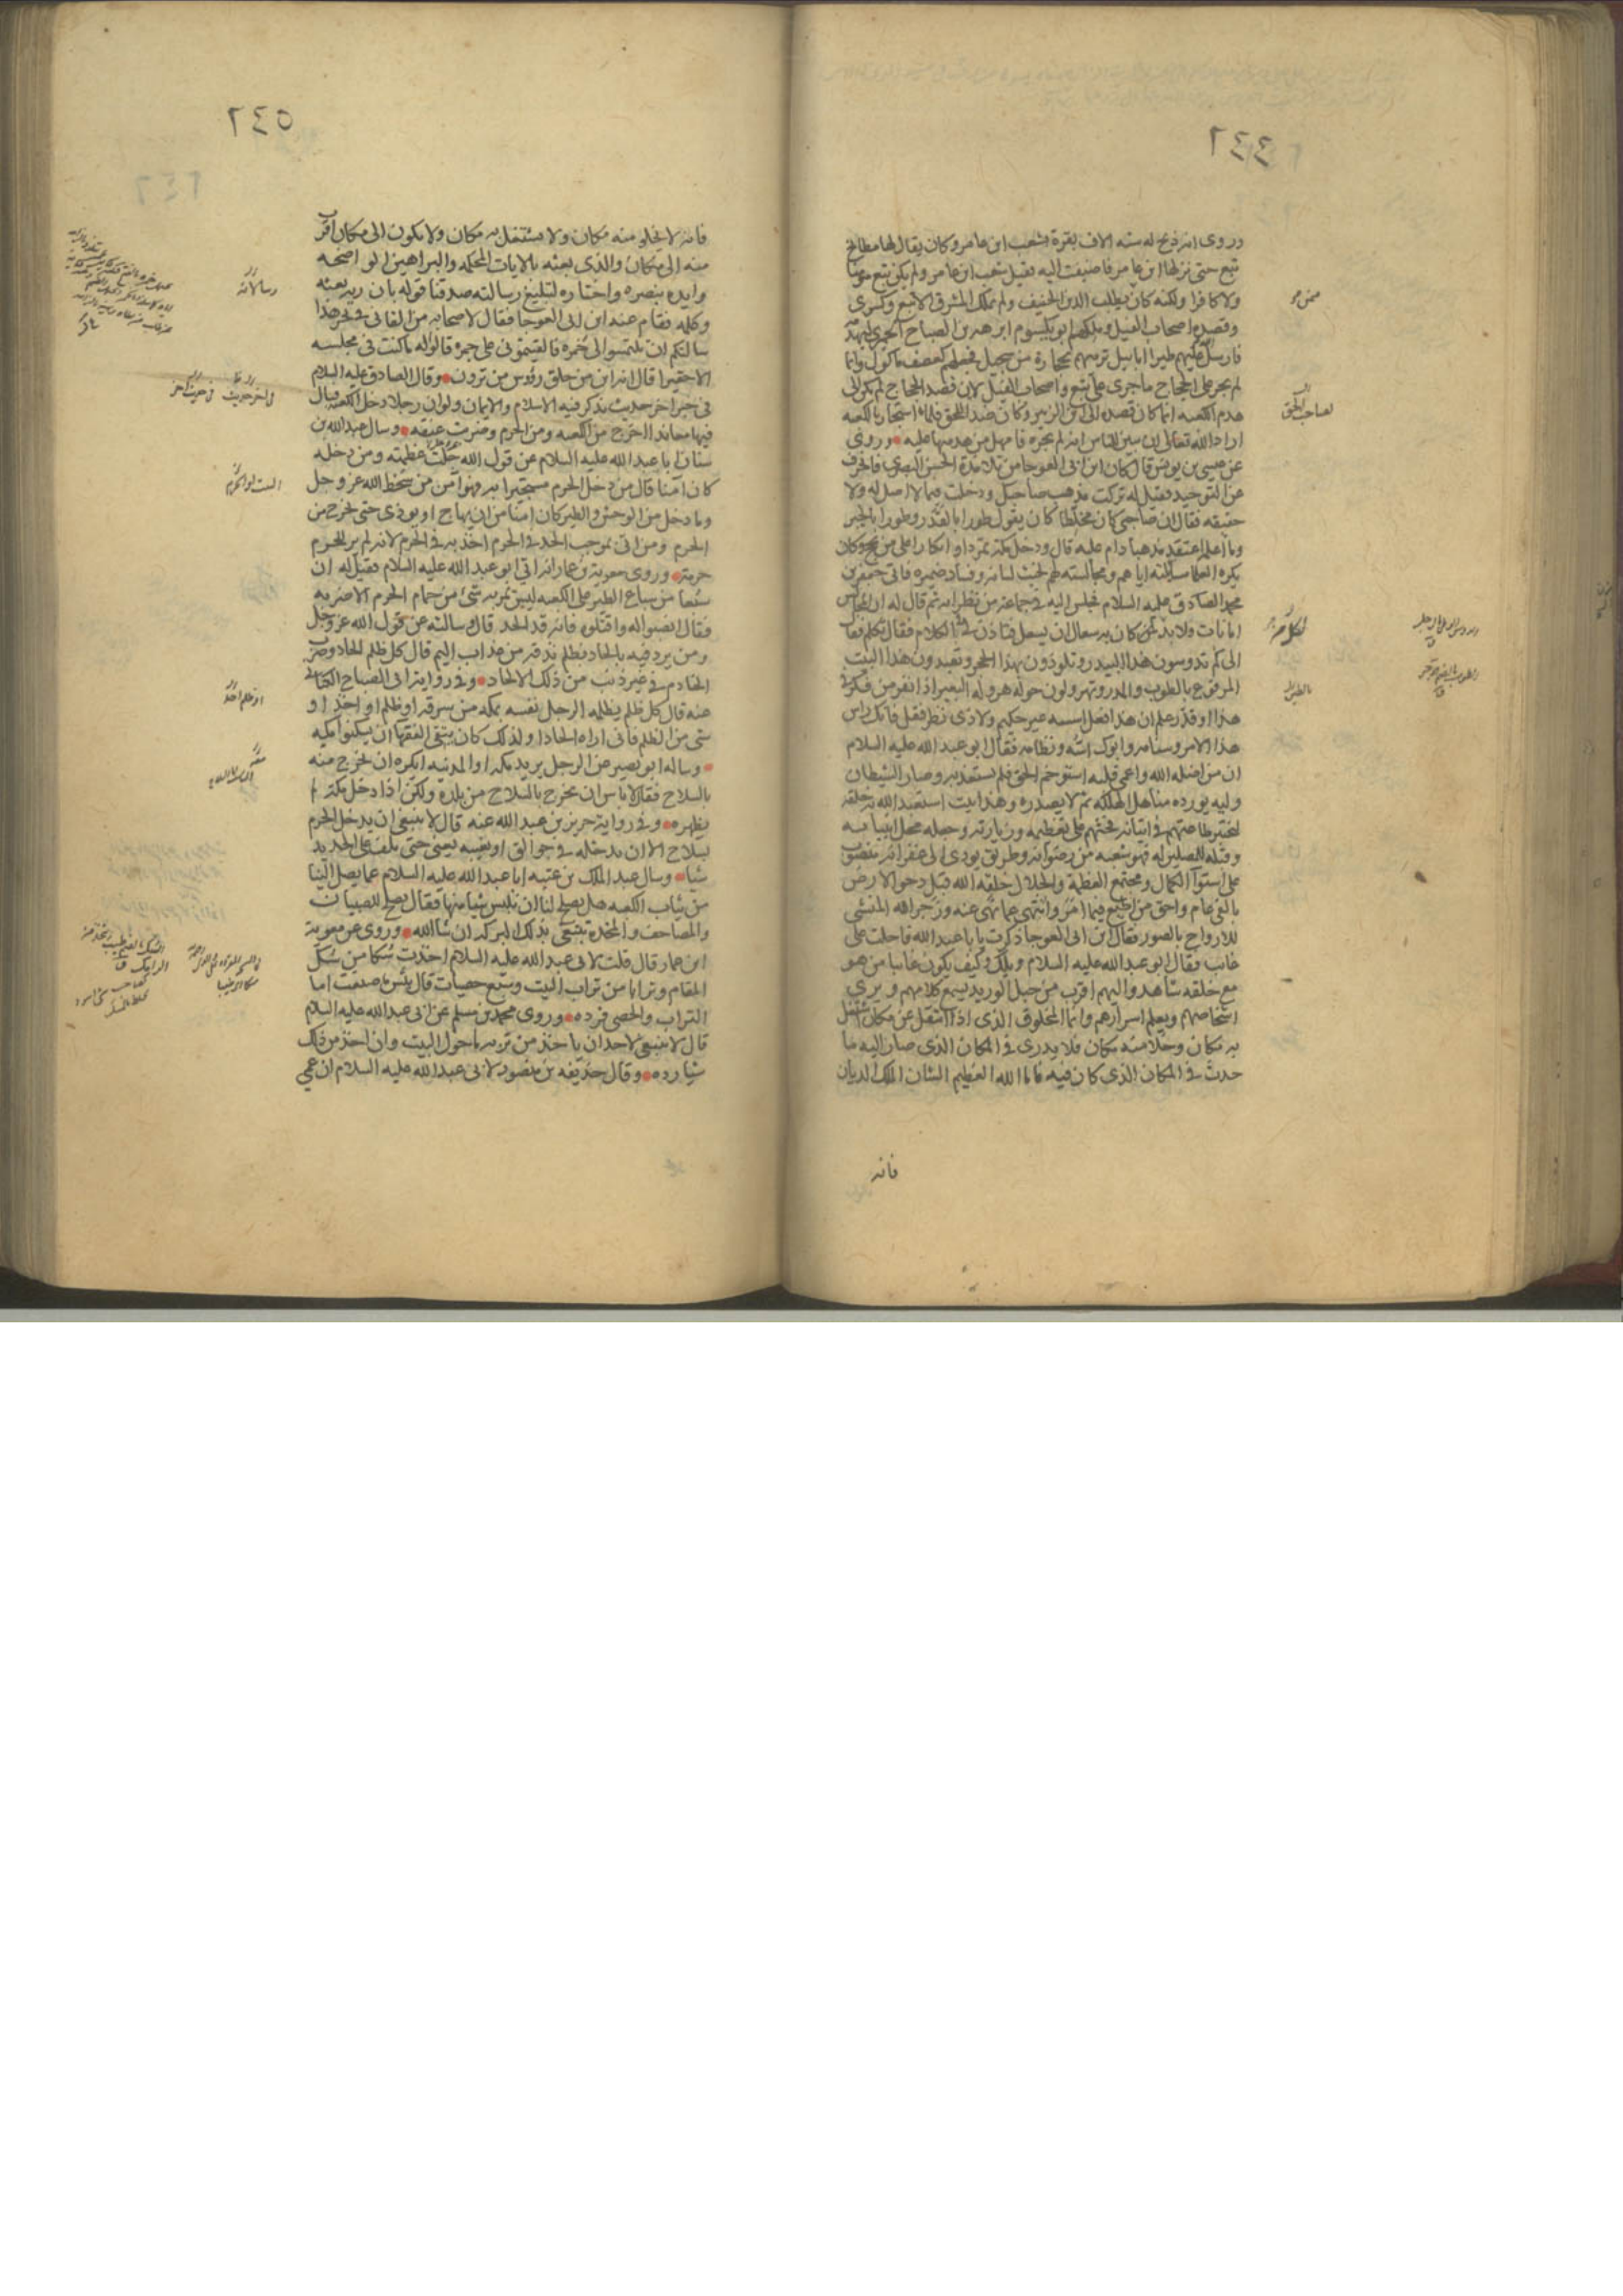 ٢٤٤
وروى انه ذبح له سته الاف بقرة بشعب ابن عامر وكان يقال لها مطابخ
تبع حتى نزلها ابن عامر فاضيفت اليه فقيل شعب ابن عامر ولم يكن تبع مومنا
ولا كافرا ولكنه كان يطلب الدين الحنيف ولم يملك المشرق الا تبع وكسرى
وقصده اصحاب الفيل وملكهم ابو يكسوم ابرهه بن الصباح الحميرى ليهدمه
فارسل الله عليهم طيرا ابابيل ترميهم بحجارة من سجيل فجعلهم كعصف ماكول وانما
لم يجر على الحجاج ما جرى على تبع واصحاب الفيل لان قصد الحجاج لم يكن الى
هدم الكعبه انما كان قصده الى ابن الزبير وكان ضد اللحق فلما استجار بالكعبه
اراد الله تعالى ان يبين للناس انه لم يجره فامهل من هدمها عليه وروى
عن عيسى بن يونس قال كان ابن ابى العوجا من تلامذة الحسن البصرى فانحرف
عن التوحيد فقيل له تركت مذهب صاحبك ودخلت فيما لا اصل له ولا
حقيقه فقال ان صاحبى كان مخلطا كان يقول طورا بالقدر وطورا بالجبر
وما اعلمه اعتقد مذهبا دام عليه قال ودخل مكة تمردا وانكارا على من يحج وكان
يكره العلما مسايلته اياهم ومجالسته لهم لخبث لسانه وفساد ضميره فاتى جعفر بن
محمد الصادق عليه السلام فجلس اليه فى جماعة من نظرائه ثم قال له ان المجالس
امانات ولا بد لمن كان به سعال ان يسعل فتاذن فى الكلام فقال تكلم فقال
الى كم تدوسون هذا البيدر وتلوذون بهذا الحجر وتعبدون هذا البيت
المرفوع بالطوب والمدر وتهرولون حوله هرولة البعير اذا نفر من فكر فى
هذا او قدر علم ان هذا فعل اسسه غير حكيم ولا ذى نظر فقل فانك راس
هذا الامر وسنامه وابوك اسه ونظامه فقال ابو عبد الله عليه السلام
ان من اضله الله واعمى قلبه استوخم الحق فلم يستعذبه وصار الشيطان
وليه يورده مناهل الهلكه ثم لا يصدره وهذا بيت استعبد الله به خلقه
ليختبر طاعتهم فى اتيانه فحثهم على تعظيمه وزيارته وجعله محل انبيائه
وقبلة للمصلين له فهو شعبه من رضوانه وطريق يودى الى غفرانه منصوب
على استوا الكمال ومجتمع العظمة والجلال خلقه الله قبل دحو الارض
بالفى عام واحق من اطيع فيما امر وانتهى عما نهى عنه وزجر الله المنشى
للارواح بالصور فقال ابن ابى العوجا ذكرت يا ابا عبد الله فاحلت على
غائب فقال ابو عبد الله عليه السلام ويلك وكيف يكون غائبا من هو
مع خلقه شاهد واليهم اقرب من حبل الوريد يسمع كلامهم ويرى
اشخاصهم ويعلم اسرارهم وانما المخلوق الذى اذا انتقل عن مكان اشتغل
به مكان وخلا منه مكان فلا يدرى فى المكان الذى صار اليه ما
حدث فى المكان الذى كان فيه فاما الله العظيم الشان الملك الديان
فانه
٢٤٥
فانه لا يخلو منه مكان ولا يشتغل به مكان ولا يكون الى مكان اقرب
منه الى مكان والذى بعثه بالايات المحكمه والبراهين الواضحه
وايده بنصره واختاره لتبليغ رسالته صدقنا قوله بان ربه بعثه
وكلمه فقام عنه ابن ابى العوجا فقال لاصحابه من القانى فى بحر هذا
سالتكم ان تلتمسوا لى خمره فالقيتمونى على جمرة قالوا له ما كنت فى مجلسه
الا حقيرا قال انه ابن من حلق رؤس من ترون وقال الصادق عليه السلام
فى خبر اخر حديث يذكر فيه الاسلام والايمان ولو ان رجلا دخل الكعبه فبال
فيها معاندا اخرج من الكعبه ومن الحرم وضربت عنقه وسال عبد الله بن
سنان ابا عبد الله عليه السلام عن قول الله جلت عظمته ومن دخله
كان آمنا قال من دخل الحرم مستجيرا به فهو آمن من سخط الله عز وجل
وما دخل من الوحش والطير كان امنا من ان يهاج او يوذى حتى يخرج من
الحرم ومن اتى بموجب الحد فى الحرم اخذ به فى الحرم لانه لم ير للحرم
حرمة وروى معوية بن عمار انه اتى ابو عبد الله عليه السلام فقيل له ان
سبعا من سباع الطير على الكعبه ليس يمر به شئ من حمام الحرم الا ضربه
فقال انصبوا له واقتلوه فانه قد الحد قال وسالته عن قول الله عز وجل
ومن يرد فيه بالحاد بظلم نذقه من عذاب اليم قال كل ظلم الحاد وضرب
الخادم فى غير ذنب من ذلك الالحاد وفى رواية ابى الصباح الكنانى
عنه قال كل ظلم يظلمه الرجل نفسه بمكه من سرقه او ظلم او اخذ او
شى من الظلم فانى اراه الحادا ولذلك كان يتقى الفقها ان يسكنوا مكه
وساله ابو بصير عن الرجل يريد مكه او المدينه ايكره ان يخرج منه
بالسلاح فقال لا باس ان يخرج بالسلاح من بلده ولكن اذا دخل مكة لم
يظهره وفى رواية حريز بن عبد الله عنه قال لا ينبغى ان يدخل الحرم
بسلاح الا ان يدخله فى جوالق او يغيبه يعنى حتى يلف على الحديد
شيا وسال عبد الملك بن عتبه ابا عبد الله عليه السلام عما يصل الينا
من ثياب الكعبه هل يصلح لنا ان نلبس شيا منها فقال يصلح للصبيان
والمصاحف والمخدة تبتغى بذلك البركه ان شا الله وروى عن معوية
ابن عمار قال قلت لابى عبد الله عليه السلام اخذت سكا من سك
المقام وترابا من تراب البيت وسبع حصيات قال بئس ما صنعت اما
التراب والحصى فرده وروى محمد بن مسلم عن ابى عبد الله عليه السلام
قال لا ينبغى لاحد ان ياخذ من تربه ما حول البيت وان اخذ من ذلك
شيا رده وقال حذيفه بن منصور لابى عبد الله عليه السلام ان عمى